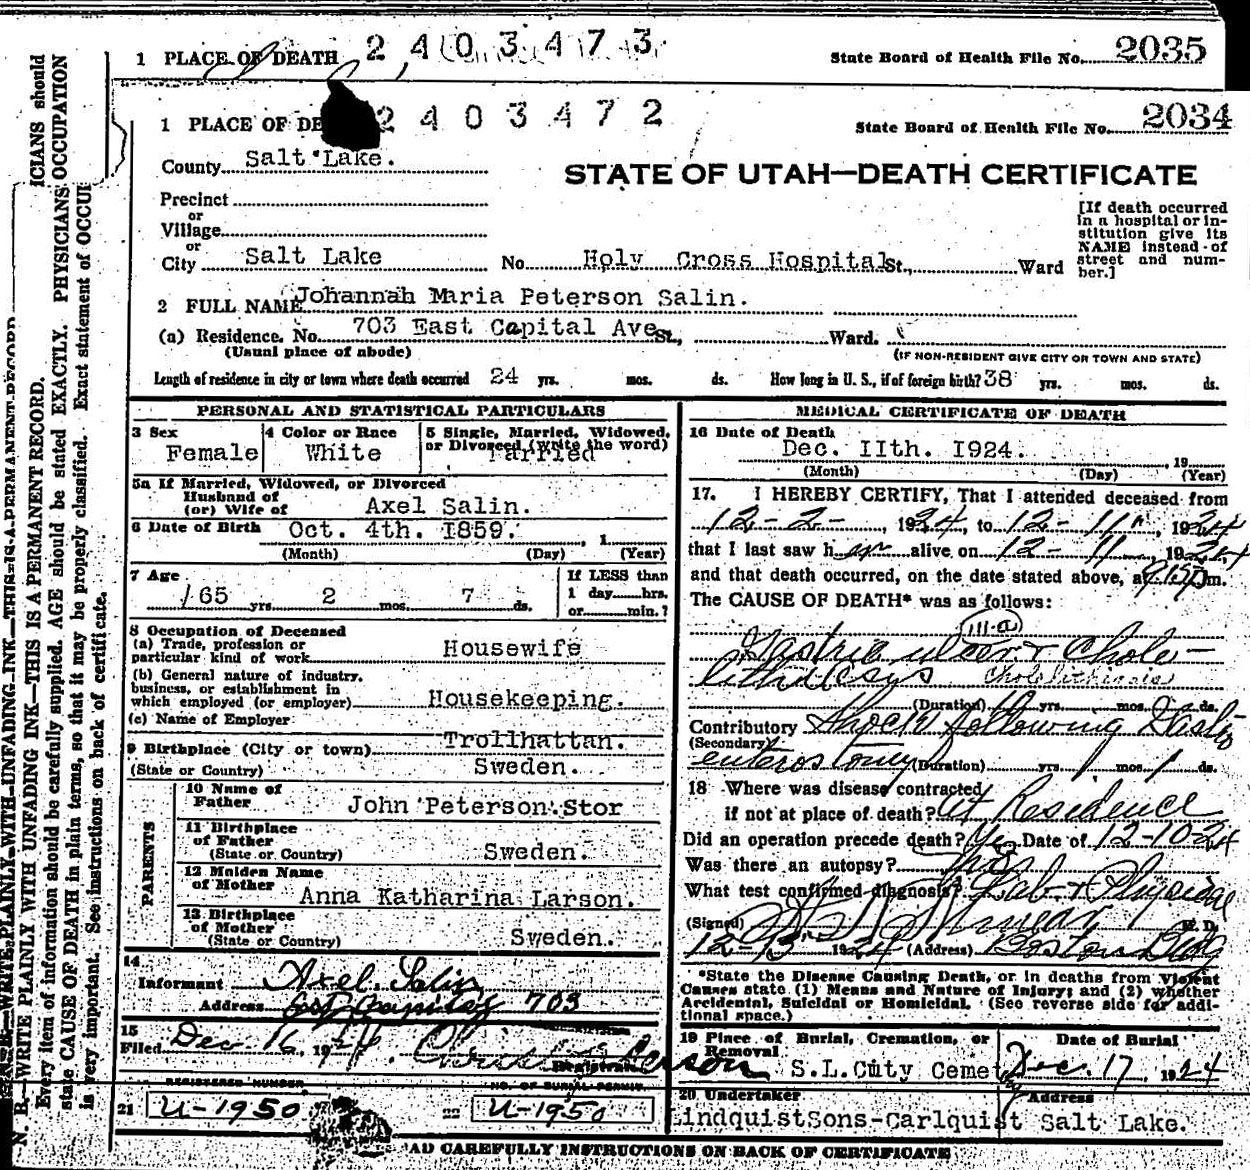 1 PLACE OF DEATH 2403473 State Board of Health File No. 2035
1 PLACE OF DE 2403472 State Board of Health File No. 2034
County Salt Lake.
STATE OF UTAH—DEATH CERTIFICATE
Precinct
or
Village
or
City Salt Lake No. Holy Cross Hospital St., Ward
[If death occurred
in a hospital or in-
stitution give its
NAME instead of
street and num-
ber.]
2 FULL NAME Johannah Maria Peterson Salin.
(a) Residence. No. 703 East Capital Ave St., Ward.
(Usual place of abode) (IF NON-RESIDENT GIVE CITY OR TOWN AND STATE)
Length of residence in city or town where death occurred 24 yrs. mos. ds. How long in U. S., if of foreign birth? 38 yrs. mos. ds.
PERSONAL AND STATISTICAL PARTICULARS
3 Sex
Female
4 Color or Race
White
5 Single, Married, Widowed,
or Divorced (write the word)
5a If Married, Widowed, or Divorced
Husband of
(or) Wife of Axel Salin.
6 Date of Birth Oct. 4th. I859. , 1
(Month) (Day) (Year)
7 Age
65 yrs. 2 mos. 7 ds.
If LESS than
1 day hrs.
or min.?
8 Occupation of Deceased
(a) Trade, profession or
particular kind of work Housewife
(b) General nature of industry,
business, or establishment in
which employed (or employer) Housekeeping.
(c) Name of Employer
9 Birthplace (City or town) Trollhattan.
(State or Country) Sweden.
PARENTS
10 Name of
Father John Peterson Stor
11 Birthplace
of Father
(State or Country) Sweden.
12 Maiden Name
of Mother Anna Katharina Larson.
13 Birthplace
of Mother
(State or Country) Sweden.
14
Informant Axel Salin
Address East Capitol 703
15
Filed Dec. 16, 1924.
Registrar
REGISTERED NUMBER NO. OF BURIAL PERMIT
21 U-1950 22 U-1950
MEDICAL CERTIFICATE OF DEATH
16 Date of Death
Dec. IIth. I924. 19
(Month) (Day) (Year)
17. I HEREBY CERTIFY, That I attended deceased from
12-2-, 1924, to 12-11, 1924
that I last saw her alive on 12-11, 1924
and that death occurred, on the date stated above, at m.
The CAUSE OF DEATH* was as follows:
111-a
Gastric ulcer & Chole-
lithiasys Cholelithiasis
(Duration) yrs. mos. ds.
Contributory Shock following Gastro
(Secondary)
enterostomy (Duration) yrs. mos. 1 ds.
18 Where was disease contracted
if not at place of death? At Residence
Did an operation precede death? Yes Date of 12-10-24
Was there an autopsy?
What test confirmed diagnosis? Lab & Physical
(Signed) M. D.
12-13 1924 (Address) Boston Bldg
*State the Disease Causing Death, or in deaths from Violent
Causes state (1) Means and Nature of Injury; and (2) whether
Accidental, Suicidal or Homicidal. (See reverse side for addi-
tional space.)
19 Place of Burial, Cremation, or
Removal
S.L.City Cemet
Date of Burial
Dec. 17 1924
20 Undertaker Address
LindquistSons-Carlquist Salt Lake.
READ CAREFULLY INSTRUCTIONS ON BACK OF CERTIFICATE
N. B.—WRITE PLAINLY WITH UNFADING INK—THIS IS A PERMANENT RECORD.
Every item of information should be carefully supplied. AGE should be stated EXACTLY. PHYSICIANS should
state CAUSE OF DEATH in plain terms, so that it may be properly classified. Exact statement of OCCUPATION
is very important. See instructions on back of certificate.